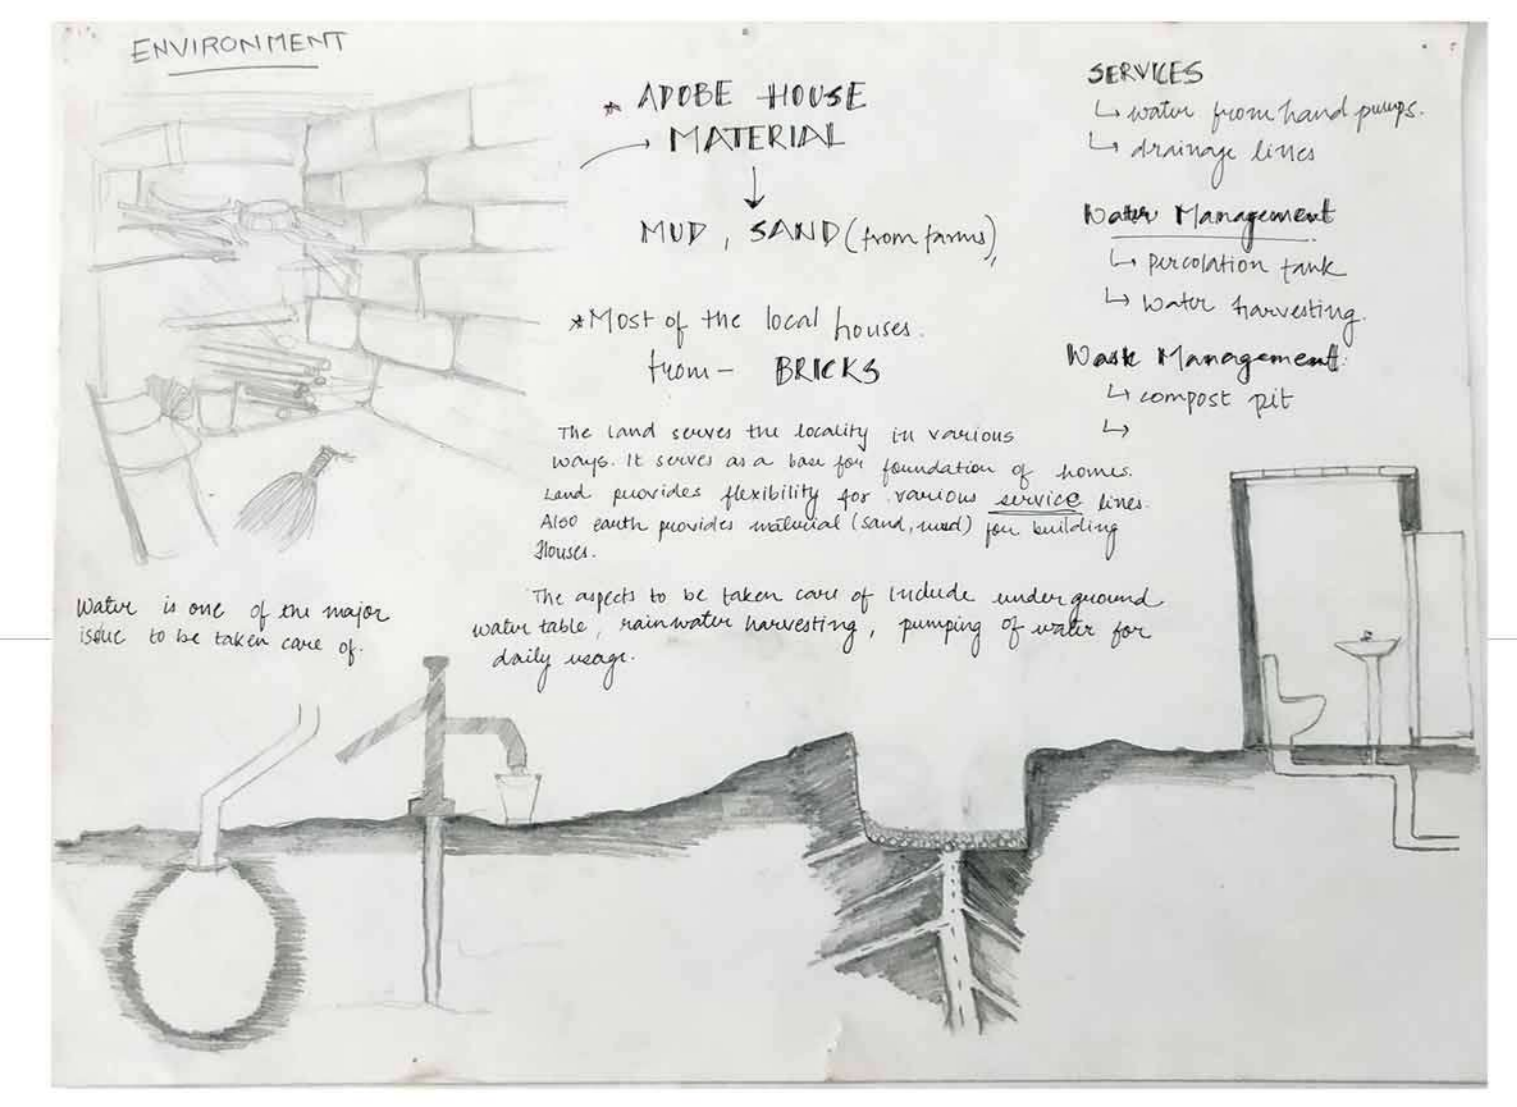 ENVIRONMENT
* ADOBE HOUSE
→ MATERIAL
↓
MUD, SAND (from farms),
*Most of the local houses.
from - BRICKS
The land serves the locality in various
ways. It serves as a base for foundation of homes.
Land provides flexibility for various service lines.
Also earth provides material (sand, mud) for building
Houses.
The aspects to be taken care of include underground
water table, rainwater harvesting, pumping of water for
daily usage.
SERVICES
↳ water from hand pumps.
↳ drainage lines
Water Management
↳ percolation tank
↳ water harvesting.
Waste Management:
↳ compost pit
↳
Water is one of the major
issue to be taken care of.